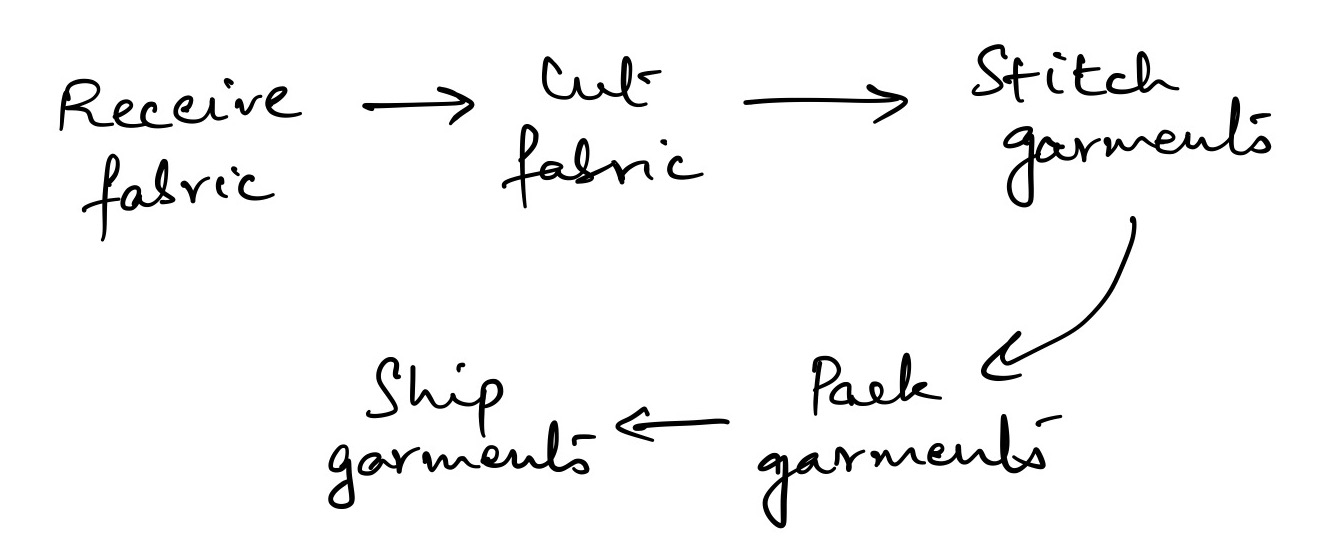 Receive
fabric
Cut
fabric
Stitch
garments
Pack
garments
Ship
garments